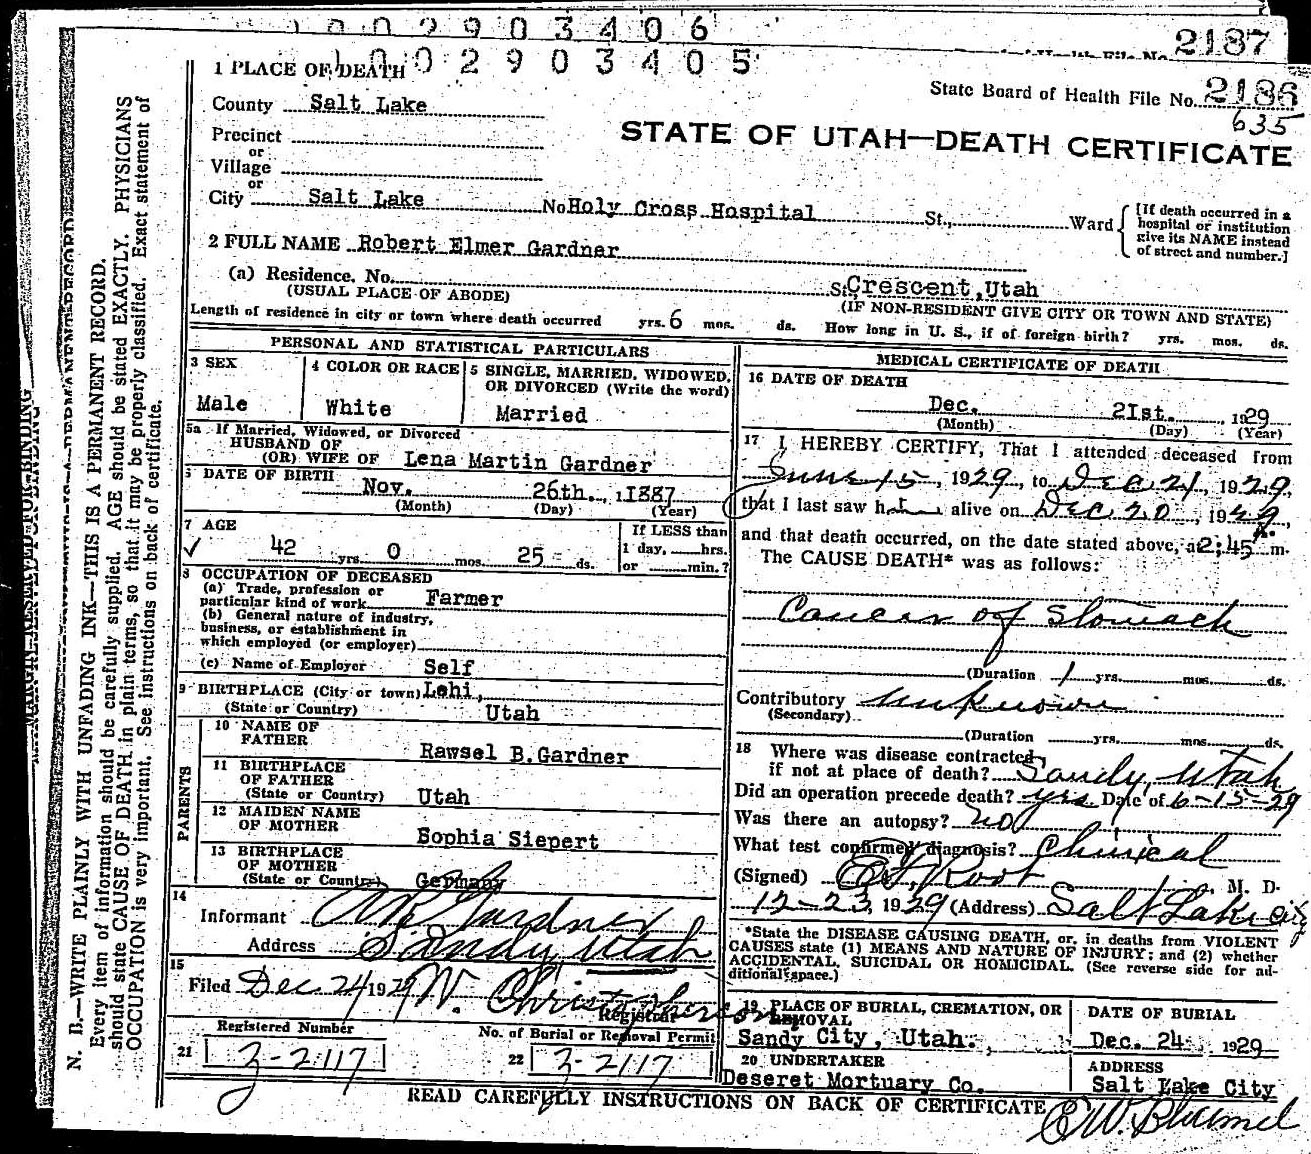 1002903406
2187
1 PLACE OF DEATH 1002903405
State Board of Health File No. 2186
635
County Salt Lake
STATE OF UTAH—DEATH CERTIFICATE
Precinct
or
Village
or
City Salt Lake No Holy Cross Hospital St., Ward
[If death occurred in a hospital or institution give its NAME instead of street and number.]
2 FULL NAME Robert Elmer Gardner
(a) Residence. No. St. Crescent, Utah
(USUAL PLACE OF ABODE) (IF NON-RESIDENT GIVE CITY OR TOWN AND STATE)
Length of residence in city or town where death occurred yrs. 6 mos. ds. How long in U. S., if of foreign birth? yrs. mos. ds.
PERSONAL AND STATISTICAL PARTICULARS
3 SEX
Male
4 COLOR OR RACE
White
5 SINGLE, MARRIED, WIDOWED,
OR DIVORCED (Write the word)
Married
5a If Married, Widowed, or Divorced
HUSBAND OF
(OR) WIFE OF Lena Martin Gardner
6 DATE OF BIRTH
Nov. 26th., 1887
(Month) (Day) (Year)
7 AGE
✓ 42 yrs. 0 mos. 25 ds.
If LESS than
1 day, hrs.
or min.?
8 OCCUPATION OF DECEASED
(a) Trade, profession or
particular kind of work Farmer
(b) General nature of industry,
business, or establishment in
which employed (or employer)
(c) Name of Employer Self
9 BIRTHPLACE (City or town) Lehi,
(State or Country) Utah
PARENTS
10 NAME OF
FATHER Rawsel B. Gardner
11 BIRTHPLACE
OF FATHER
(State or Country) Utah
12 MAIDEN NAME
OF MOTHER Sophia Siepert
13 BIRTHPLACE
OF MOTHER
(State or Country) Germany
14
Informant Gardner
Address Sandy Utah
15
Filed Dec 24 1929 W. Christopherson
Registrar
Registered Number
21 3-2117
No. of Burial or Removal Permit
22 3-2117
MEDICAL CERTIFICATE OF DEATH
16 DATE OF DEATH
Dec. 21st. 1929
(Month) (Day) (Year)
17 I HEREBY CERTIFY, That I attended deceased from
June 15, 1929, to Dec 21, 1929,
that I last saw him alive on Dec 20, 1929,
and that death occurred, on the date stated above, at 2:45 A. m.
The CAUSE DEATH* was as follows:
Cancer of Stomach
(Duration 1 yrs. mos. ds.
Contributory unknown
(Secondary)
(Duration yrs. mos. ds.
18 Where was disease contracted
if not at place of death? Sandy, Utah
Did an operation precede death? yes Date of 6-15-29
Was there an autopsy? no
What test confirmed diagnosis? Clinical
(Signed) Root, M. D.
12-23, 1929 (Address) Salt Lake City
*State the DISEASE CAUSING DEATH, or, in deaths from VIOLENT
CAUSES state (1) MEANS AND NATURE OF INJURY; and (2) whether
ACCIDENTAL, SUICIDAL OR HOMICIDAL. (See reverse side for ad-
ditional space.)
19 PLACE OF BURIAL, CREMATION, OR
REMOVAL
Sandy City, Utah.
DATE OF BURIAL
Dec. 24 1929
20 UNDERTAKER
Deseret Mortuary Co.
ADDRESS
Salt Lake City
READ CAREFULLY INSTRUCTIONS ON BACK OF CERTIFICATE
MARGIN RESERVED FOR BINDING
N. B.—WRITE PLAINLY WITH UNFADING INK—THIS IS A PERMANENT RECORD.
Every item of information should be carefully supplied. AGE should be stated EXACTLY. PHYSICIANS
should state CAUSE OF DEATH in plain terms, so that it may be properly classified. Exact statement of
OCCUPATION is very important. See instructions on back of certificate.